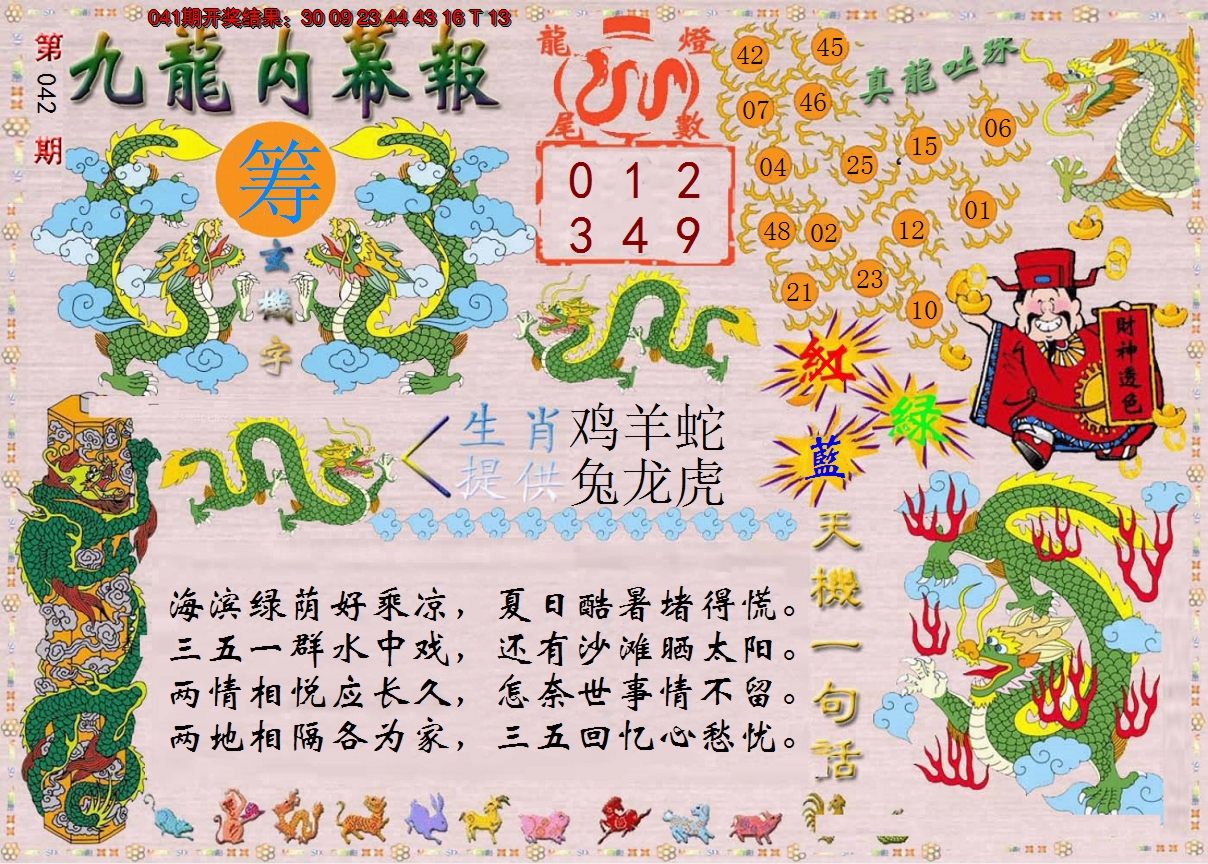 041期开奖结果：30 09 23 44 43 16 T 13
第042期
九龍内幕報
筹
玄機字
龍燈
尾數
0 1 2
3 4 9
真龍吐珠
42 45
07 46
04 25 15 06
48 02 12 01
21 23 10
財神透色
紅
绿
藍
生肖提供
鸡羊蛇
兔龙虎
海滨绿荫好乘凉，夏日酷暑堵得慌。
三五一群水中戏，还有沙滩晒太阳。
两情相悦应长久，怎奈世事情不留。
两地相隔各为家，三五回忆心愁忧。
天機一句話